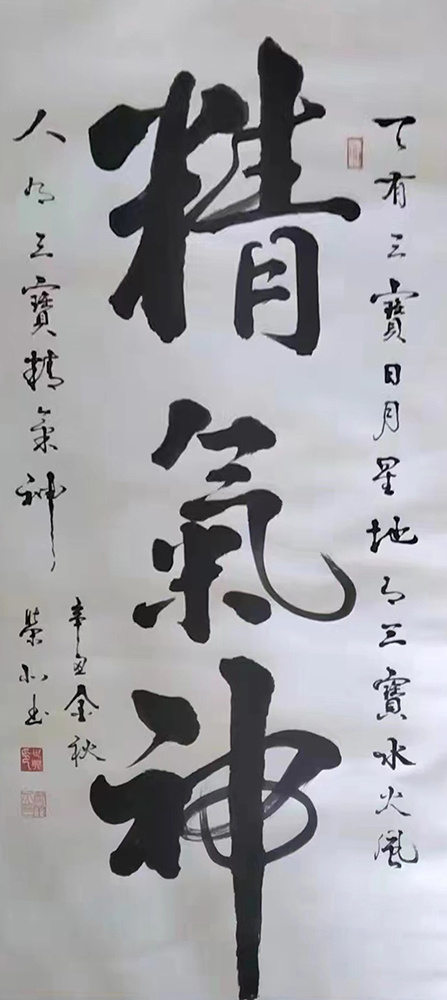 天有三寶日月星地有三寶水火風
精氣神
人有三寶精氣神
辛丑金秋
榮小書